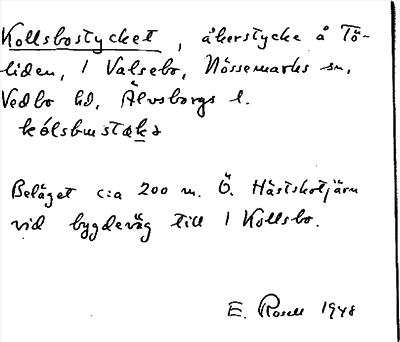 Kollsbostycket, åkerstycke å Tö-
liden, 1 Valsebo, Nössemarks sn,
Vedbo hd, Älvsborgs l.
kólsbustaka
Beläget c:a 200 m. Ö. Hästskotjärn
vid bygdeväg till 1 Kollsbo.
E. Rosell 1948